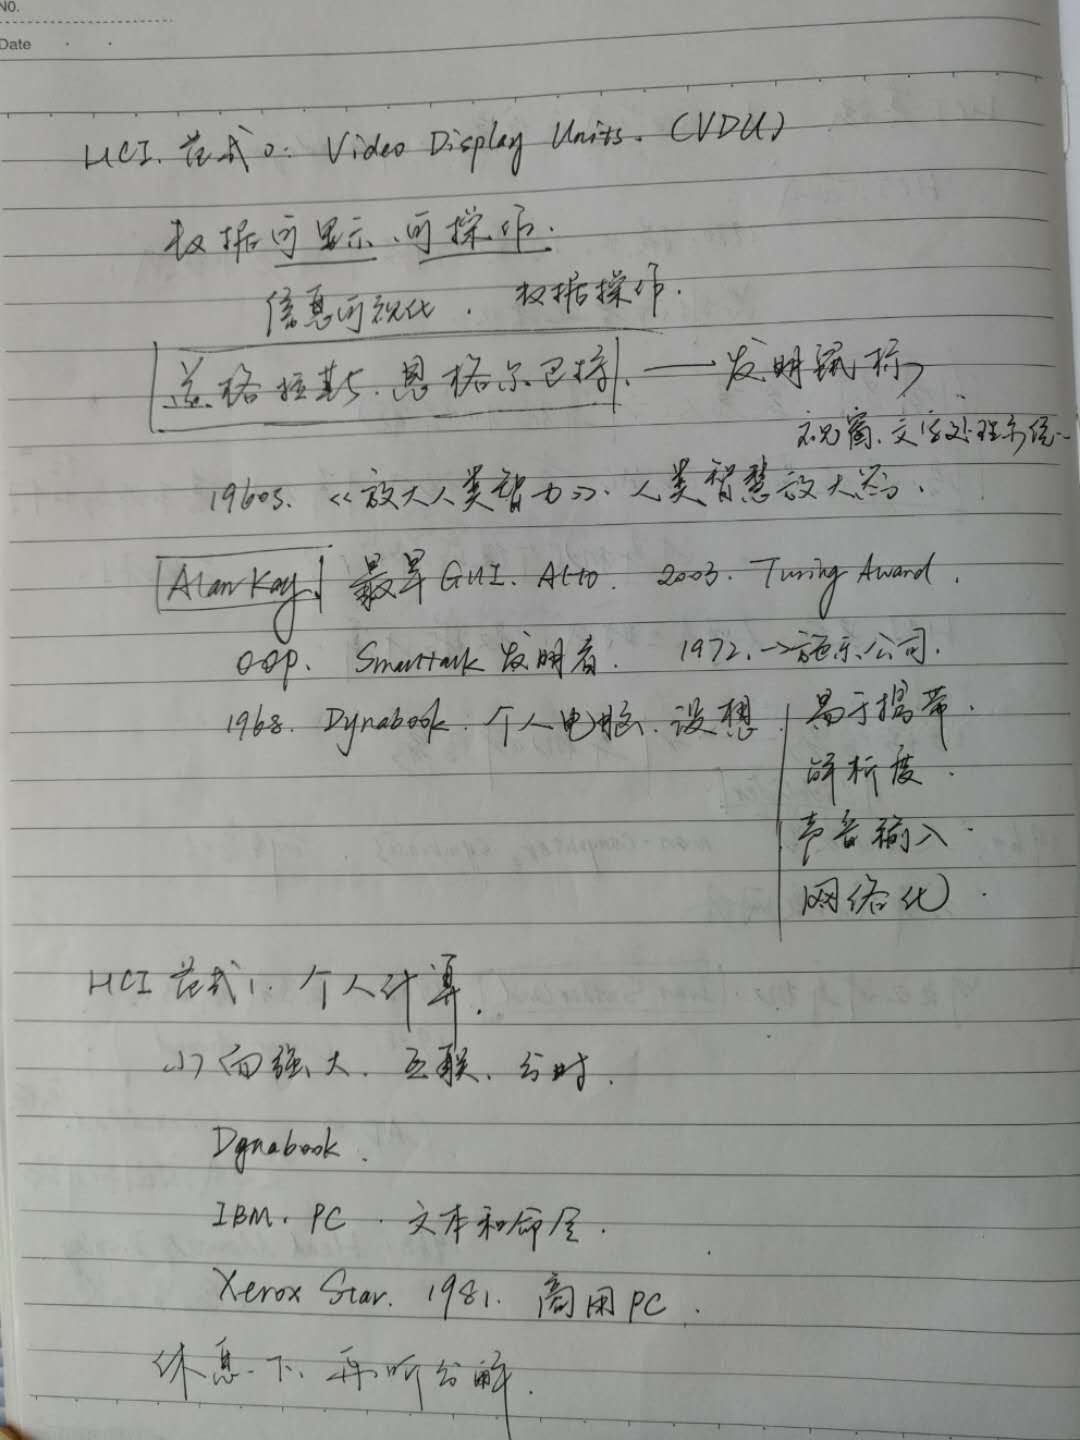 NO.
Date
HCI. 范式0: Video Display Units. (VDU)
数据可显示、可操作.
信息可视化. 数据操作.
道格拉斯.恩格尔巴特. — 发明鼠标,
视窗、文字处理系统
1960s. 《放大人类智力》. 人类智慧放大器.
Alan Kay. 最早GUI. Alto. 2003. Turing Award.
OOP. Smalltalk 发明者. 1972. →施乐公司.
1968. Dynabook. 个人电脑. 设想. 易于携带.
解析度.
声音输入.
网络化.
HCI 范式1. 个人计算.
小而强大、互联、分时.
Dynabook.
IBM. PC. 文本和命令.
Xerox Star. 1981. 商用PC.
休息一下、再听分解.